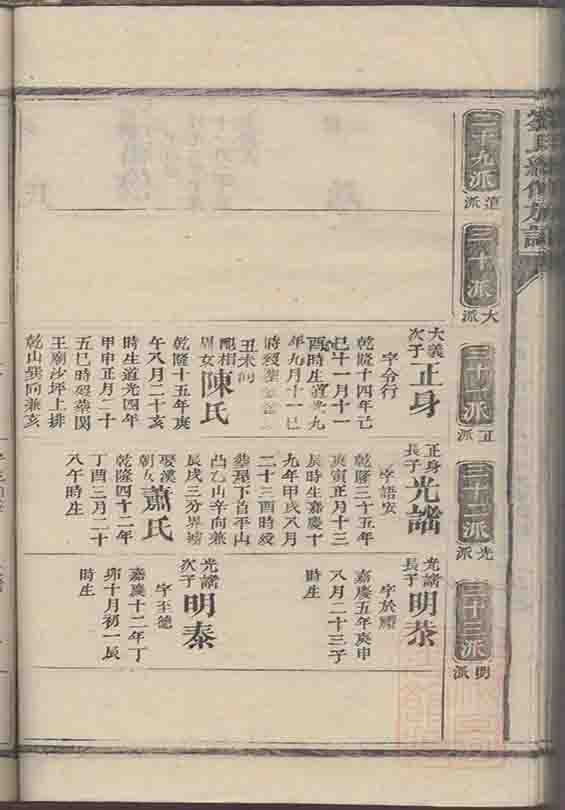 劉氏續修族譜
二十九派
渲派
三十派
大派
三十一派
正派
三十二派
光派
三十三派
明派
大義
次子
正身
字令行
乾隆十四年己
巳十一月十一
酉時生道光九
年九月十一巳
時歿葬
丑未向
配相
周女
陳氏
乾隆十五年庚
午八月二十亥
時生道光四年
甲申正月二十
五巳時歿葬関
王廟沙坪上排
乾山巽向兼亥
正身
長子
光譜
字語安
乾隆三十五年
庚寅正月十三
辰時生嘉慶十
九年甲戌八月
二十三酉時歿
葬屋下首平山
凸乙山辛向兼
辰戌三分界
娶漢
朝女
蕭氏
乾隆四十二年
丁酉三月二十
八午時生
光譜
長子
明恭
字於禮
嘉慶五年庚申
八月二十三子
時生
光譜
次子
明泰
字至德
嘉慶十二年丁
卯十月初一辰
時生